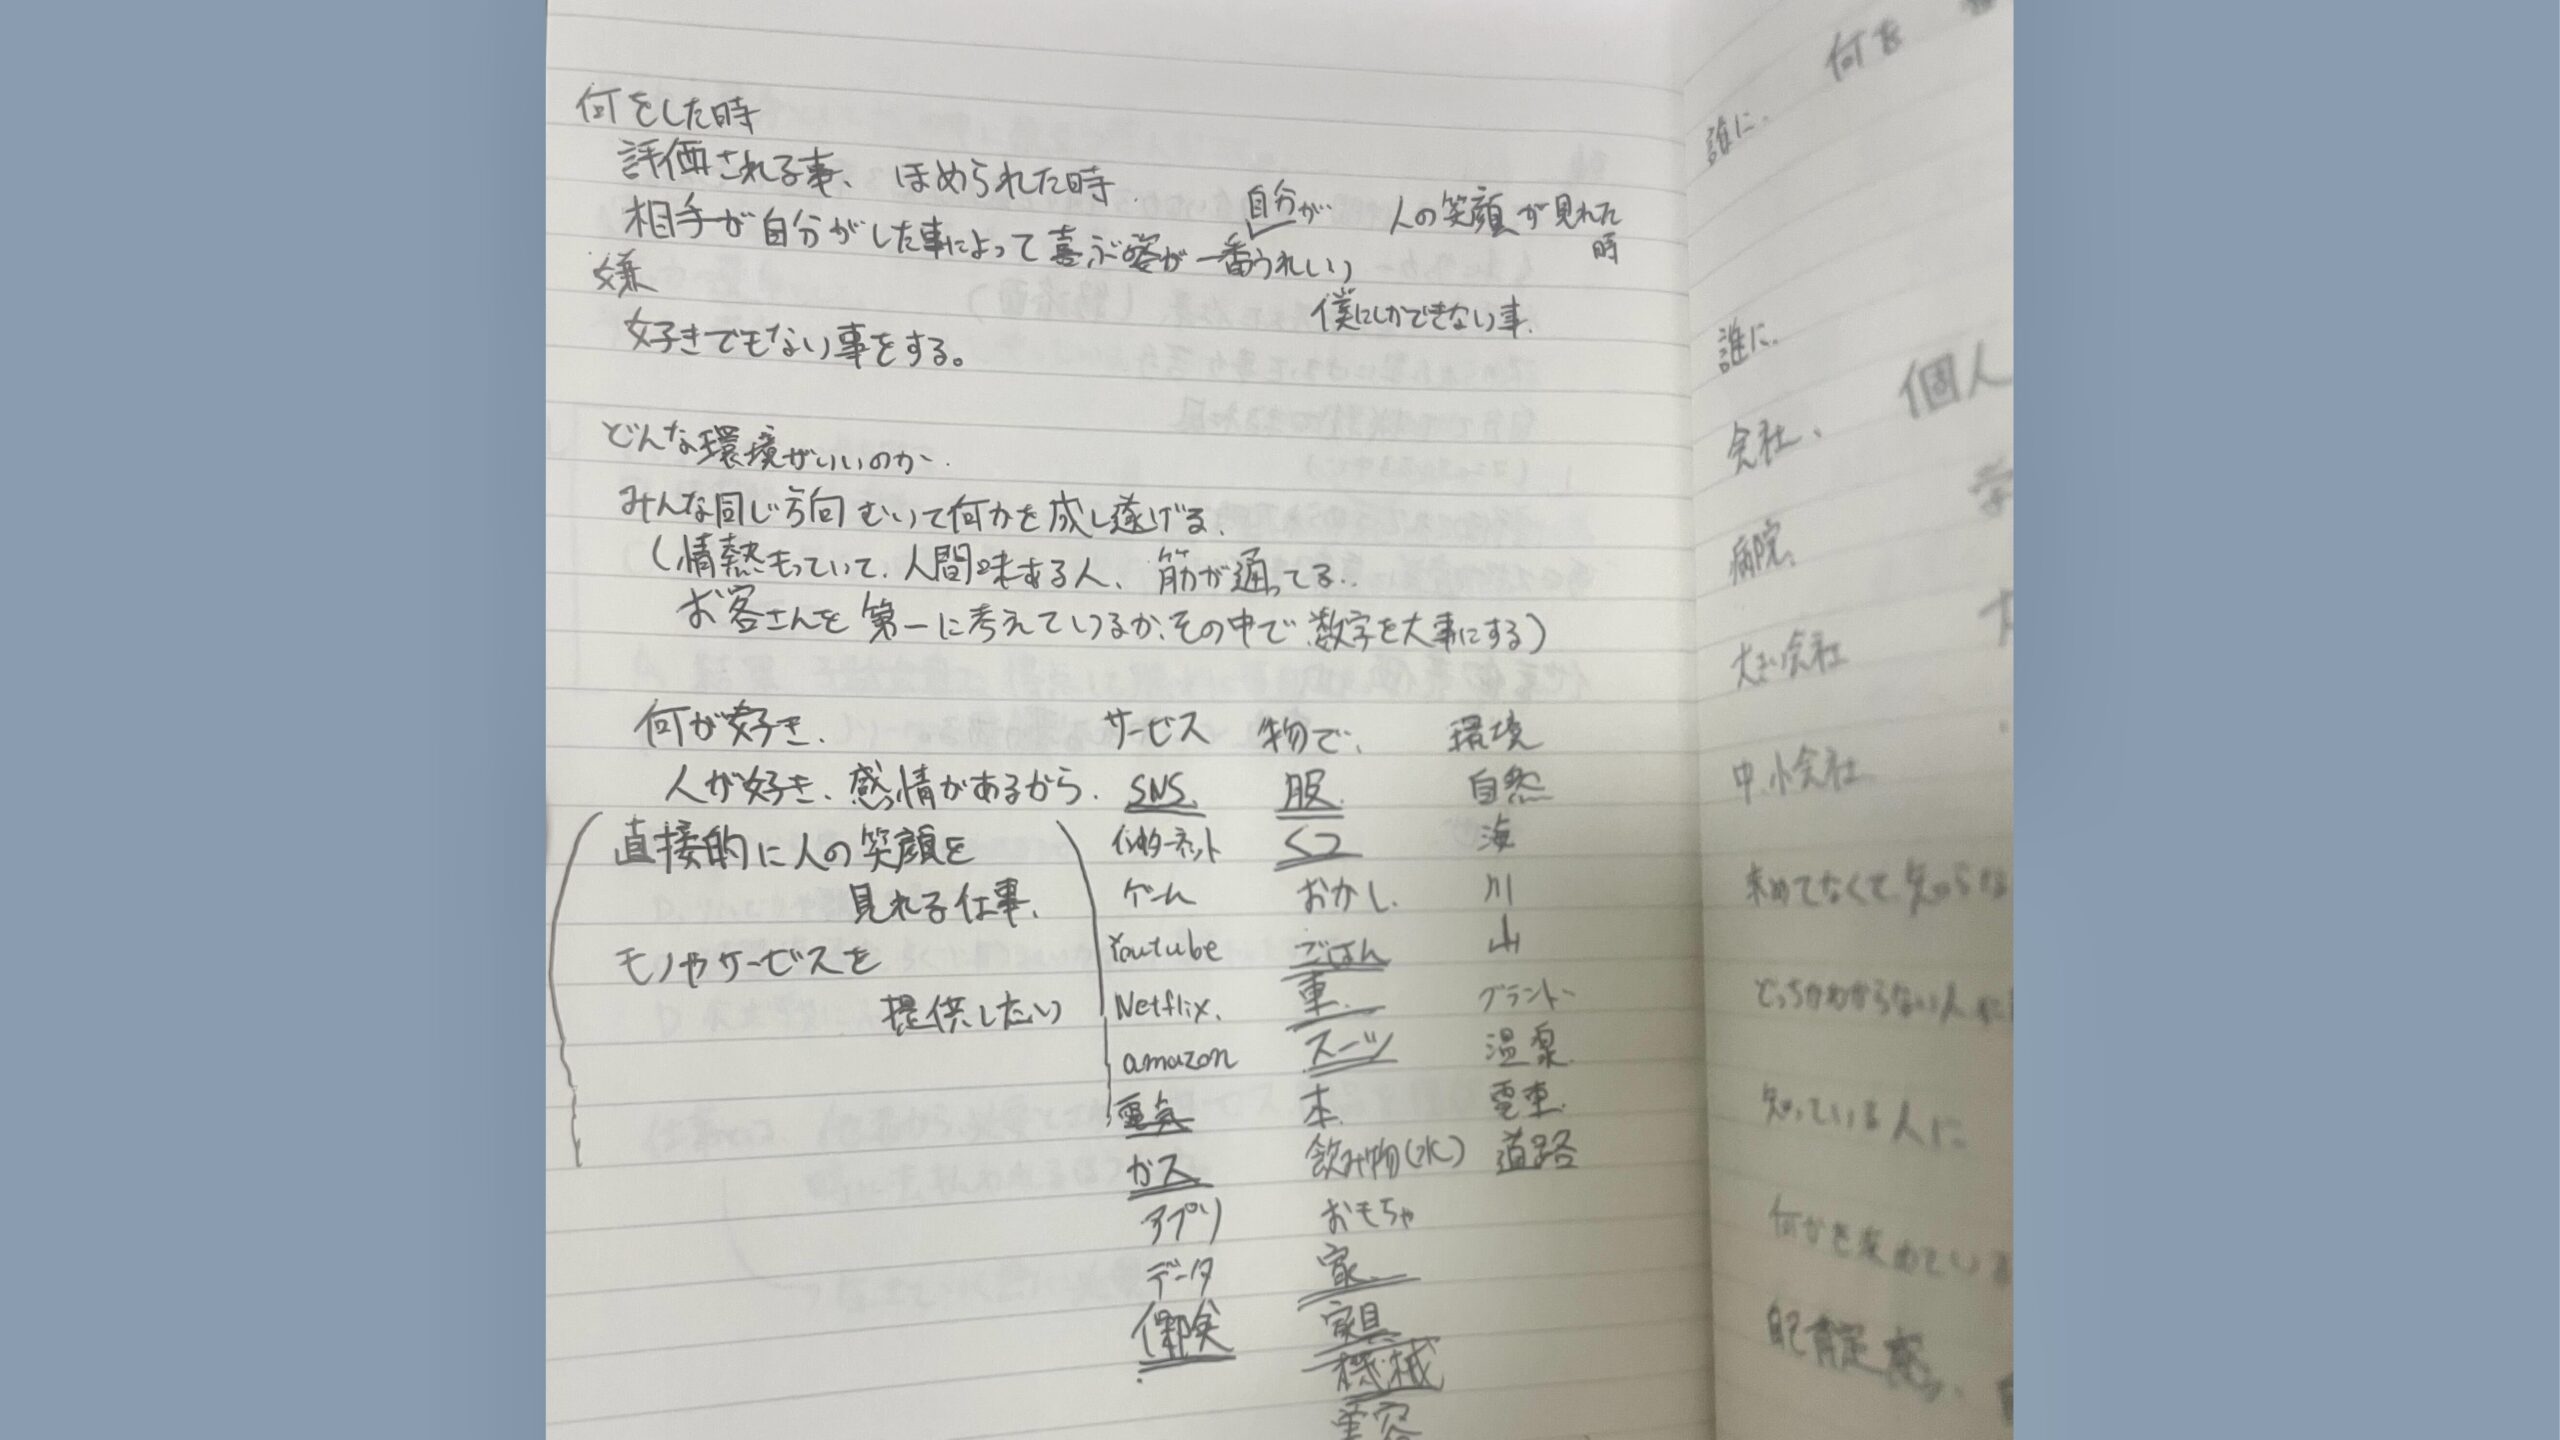 何をした時
評価される事、ほめられた時.
自分が… 人の笑顔が見れた
時
相手が自分がした事によって喜ぶ姿が一番うれしい
嫌
僕にしかできない事.
好きでもない事をする。
どんな環境がいいのか.
みんな同じ方向むいて何かを成し遂げる.
(情熱もっていて、人間味ある人、筋が通ってる..
お客さんを第一に考えているか、その中で数字を大事にする)
何が好き.
人が好き、感情があるから.
直接的に人の笑顔を
見れる仕事、
モノやサービスを
提供したい
サービス
SNS.
インターネット
ゲーム
Youtube
Netflix.
amazon
電気
ガス
アプリ
データ
保険
物で、
服.
くつ
おかし.
ごはん
車.
スーツ
本.
飲み物(水)
おもちゃ
家.
家具
機械
環境
自然
海
川
山
グランド
温泉.
電車.
道路
何を
誰に.
誰に.
個人
会社、
病院、
大きい会社
中、小会社
求めてなくて、知らな
どっちかわからない人
知っている人に
何かを求めている
自己肯定感、